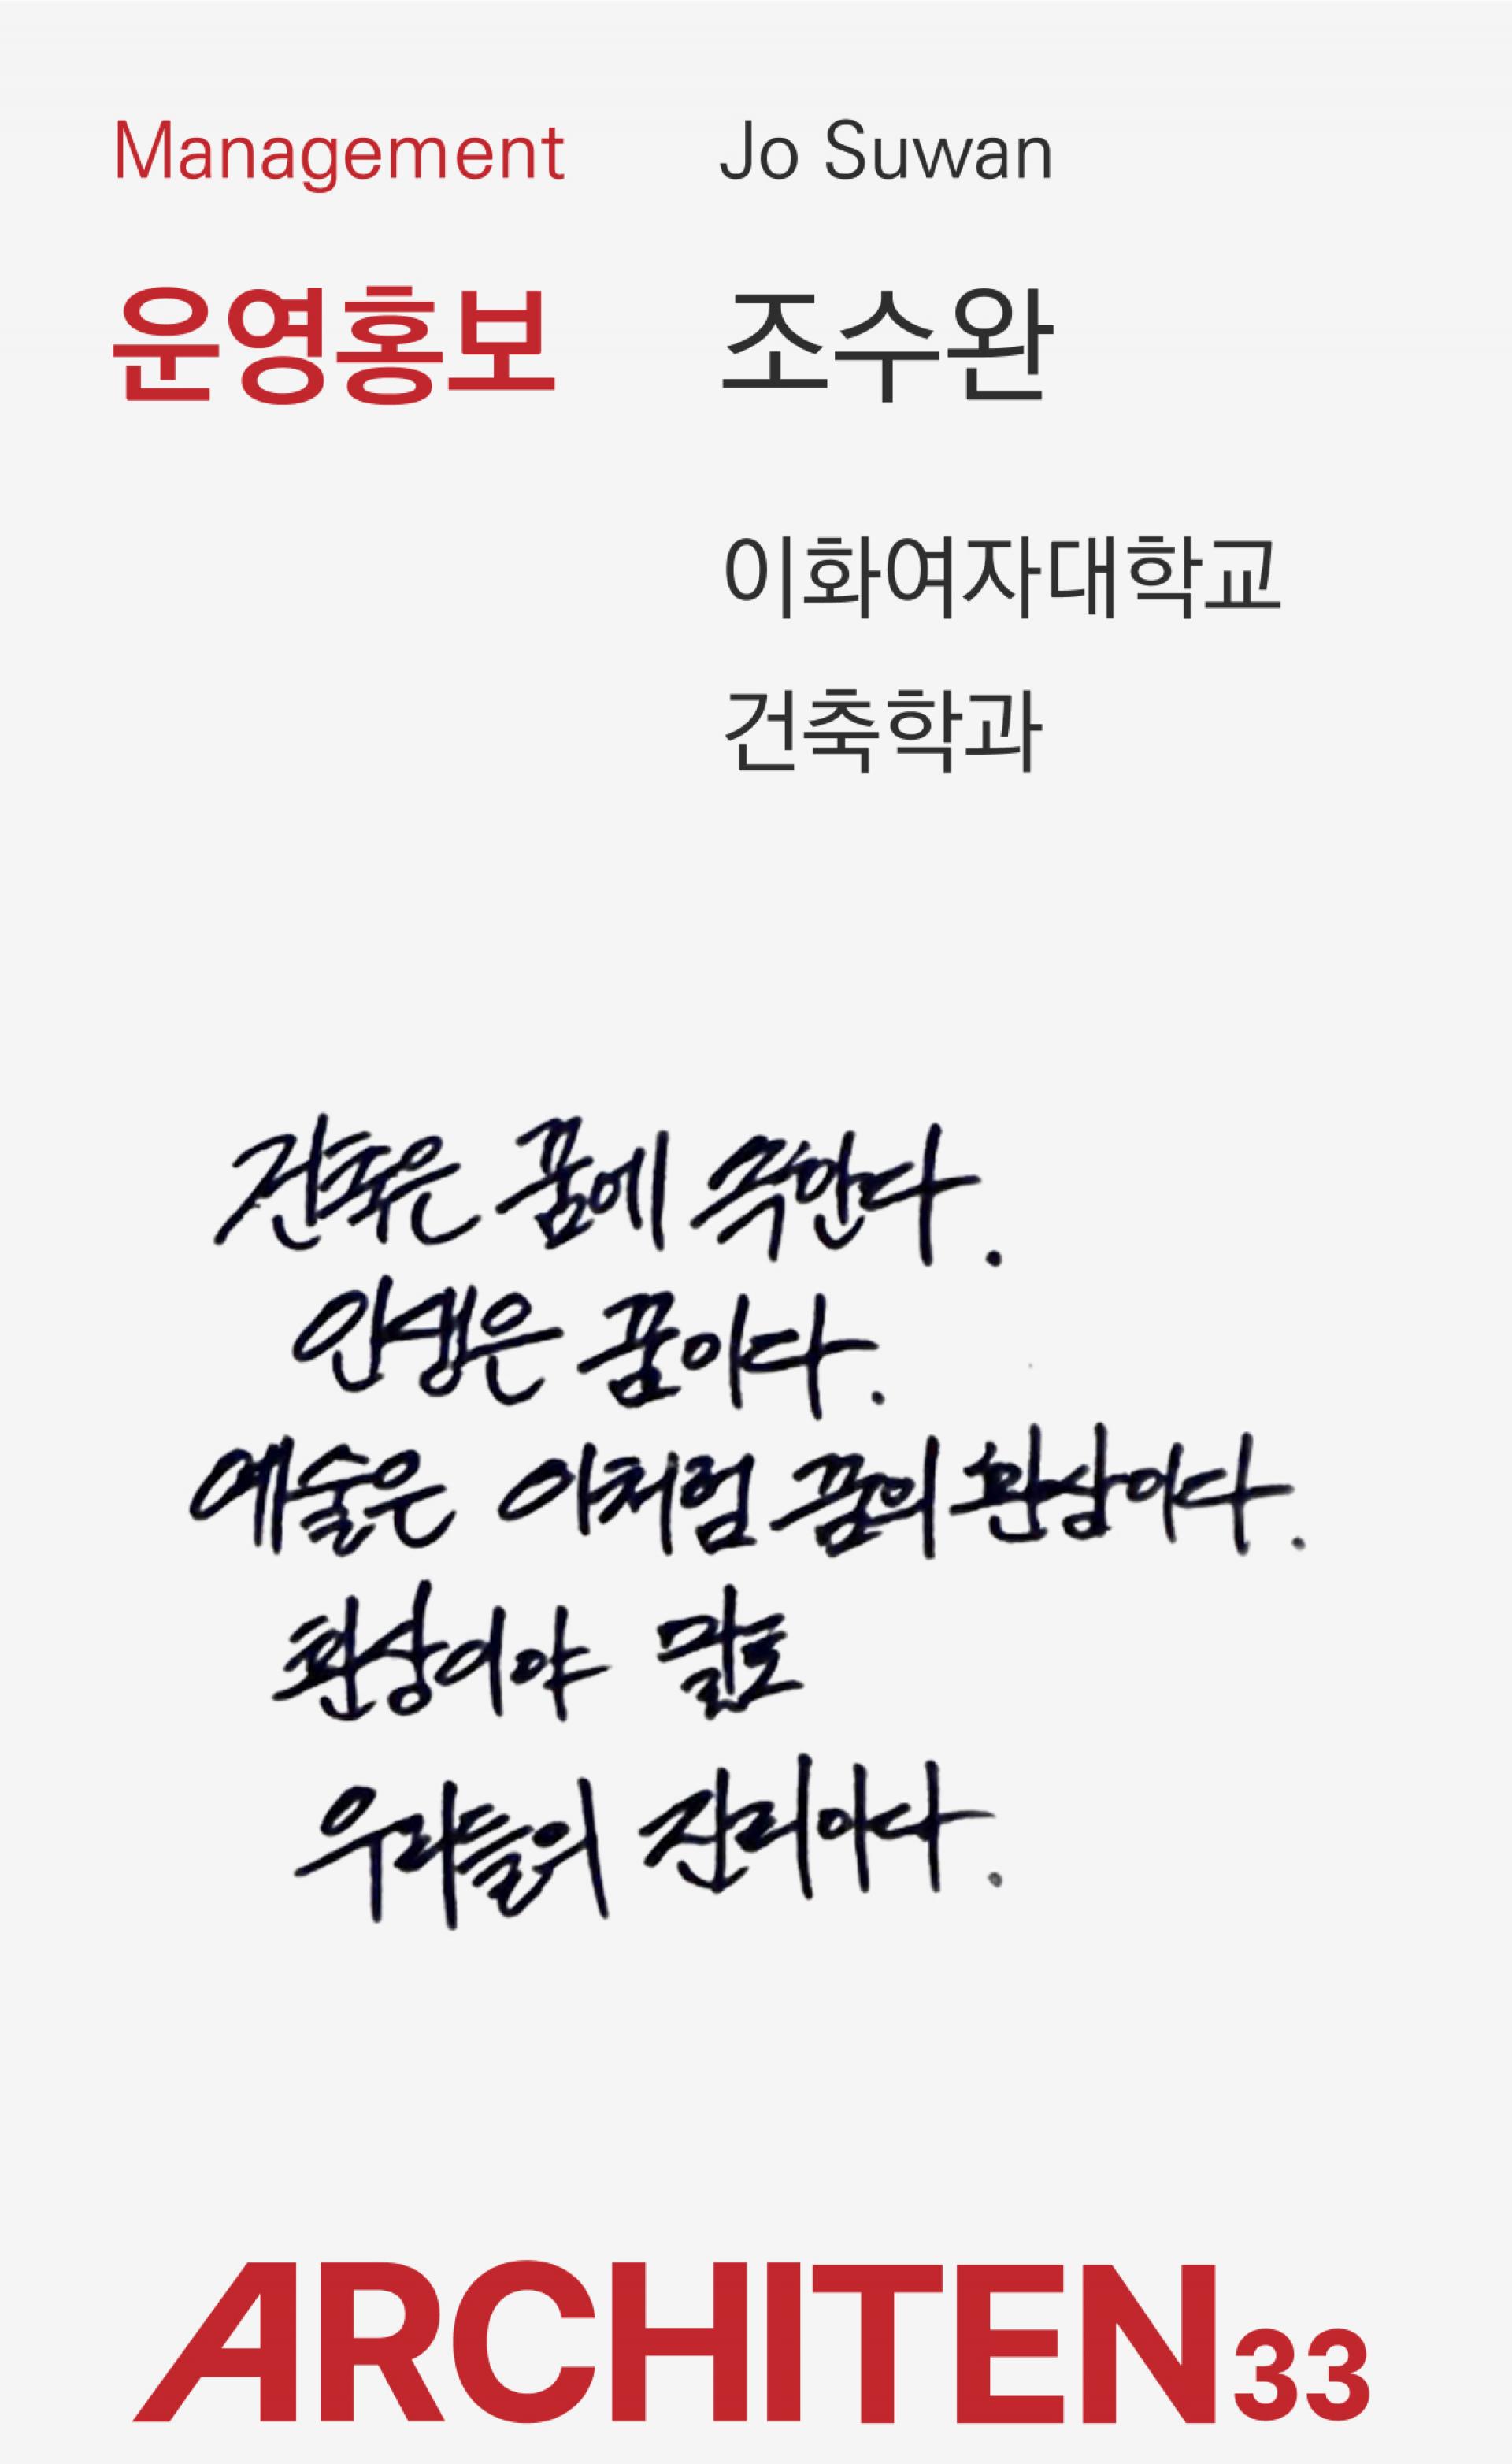 Management Jo Suwan
운영홍보 조수완
이화여자대학교
건축학과
건축은 꿈에
인생은 꿈이다.
예술은 이처럼 꿈의 환상이다.
환상이야 말로
우리들의 진리이다.
ARCHITEN33